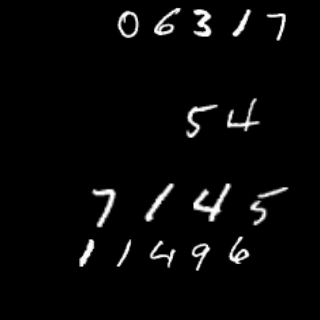 06317
54
7145
11496